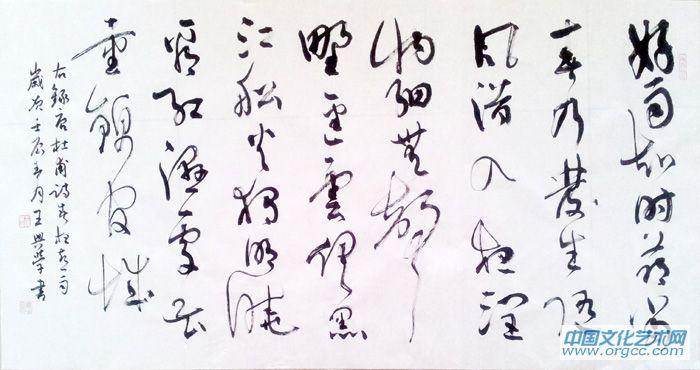 好雨知时節當
春乃發生隨
風潛入夜潤
物細無聲
野徑雲俱黑
江船火獨明曉
看紅濕處花
重錦官城
右錄唐杜甫詩春夜喜雨
歲次壬辰月王興學書
中国文化艺术网
www.orgcc.com